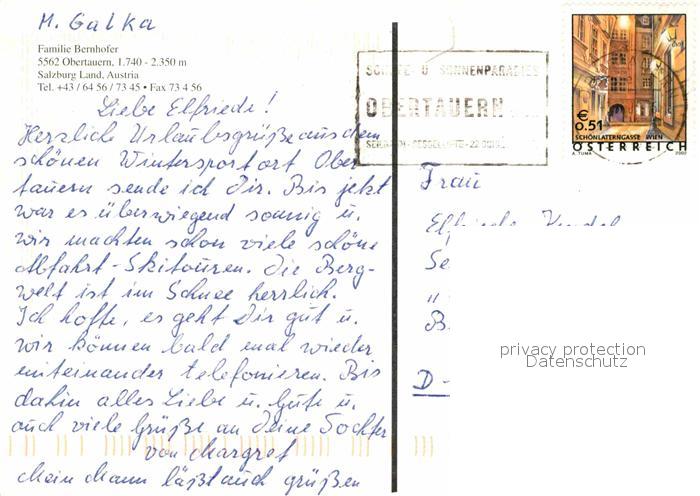 M. Galka
Familie Bernhofer
5562 Obertauern, 1.740 - 2.350 m
Salzburg Land, Austria
Tel. +43 / 64 56 / 73 45 • Fax 73 4 56
Liebe Elfriede!
Herzliche Urlaubsgrüße aus dem
schönen Wintersportort Ober-
tauern sende ich Dir. Bis jetzt
war es überwiegend sonnig u.
wir machten schon viele schöne
Abfahrt-Skitouren. Die Berg-
welt ist im Schnee herrlich.
Ich hoffe, es geht Dir gut u.
wir können bald mal wieder
miteinander telefonieren. Bis
dahin alles Liebe u. Gute u.
auch viele Grüße an Deine Tochter
von Margret
Mein Mann läßt auch grüßen
SONNENPARADIES
OBERTAUERN
€
0.51
SCHÖNLATERNGASSE WIEN
ÖSTERREICH
A. TUMA 2002
Frau
D -
privacy protection
Datenschutz